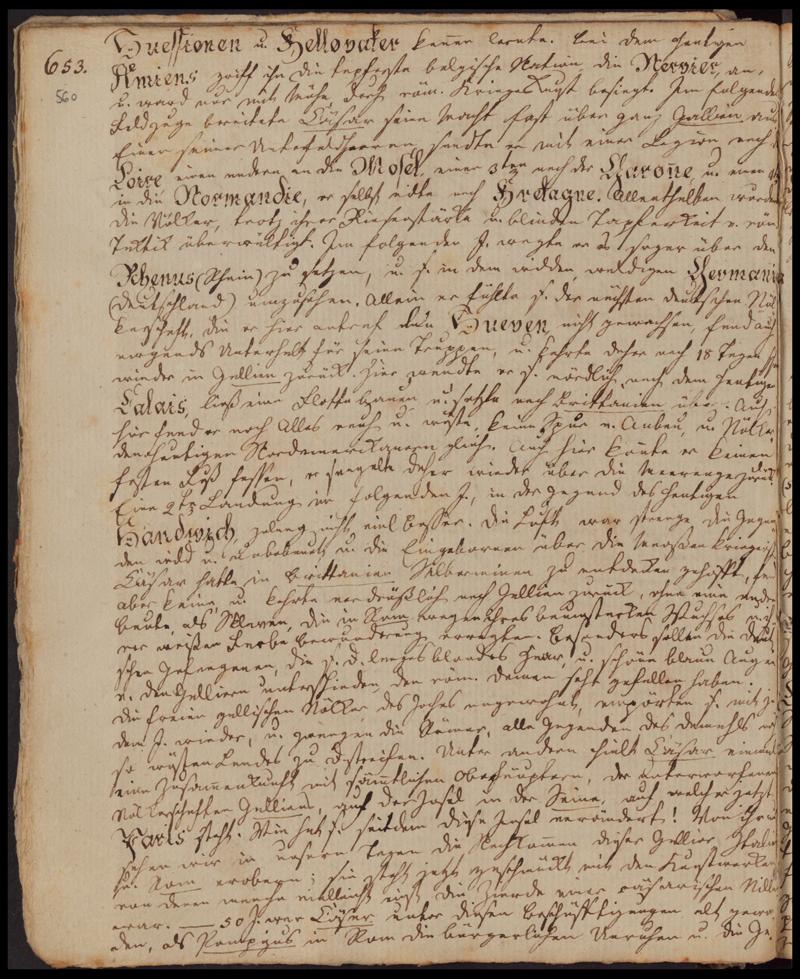 653.
560
Suessionen u. Bellovaker kennen lernte. Bei dem heutigen
Amiens griff ihn die tapferste belgische Nation, die Nervier, an,
u. ward nur mit Mühe durch röm. Kriegeskunst besiegt. Im folgende
Feldzuge breitete Cäsar seine Macht fast über ganz Gallien aus
Einen seiner Unterfeldherren sandte er mit einer Legion nach
Loire einen andern an die Mosel, einen 3ten nach der Garonne, u. einen
in die Normandie, er selbst eilte nach Bretagne. Allenthalben wurden
die Völker, trotz ihrer Riesenstärke u. blinden Tapferkeit v. röm
Tacktik überwältigt. Im folgenden J. wagte er es sogar über den
Rhenus (Rhein) zu setzen, u. s. in dem wilden, waldigen Germanien
(Deutschland) umzusehen. Allein er fühlte s. der nächsten deutschen Völ
kerschaft, die er hier antraf den Sueven nicht gewachsen, fand auch
nirgends Unterhalt für seine Truppen, u. kehrte daher nach 18 Tagen
wieder in Gallien zurück. Hier wendte er s. nördlich nach dem heutigen
Calais, ließ eine Flotte bauen u. setzte nach Brittanien über. Auch
hier fand er noch Alles rauh u. wüste, keine Spur v. Anbau, u. Völker
den heutigen Nordamerikanern gleich. Auch hier konnte er keinen
festen Fuß fassen, er seegelte daher wieder über die Meerenge zurück
Eine 2te Landung im folgenden J., in der Gegend des heutigen
Sandwich, gelang nicht viel besser. Die Luft war strenge, die Gegen
den wild u. unbebaut u. die Eingebornen über die Maaßen kriegerisch
Cäsar hatte in Brittanien Silberminen zu entdecken gehofft, fand
aber keine, u. kehrte verdrüßlich nach Gallien zurück, ohne eine andere
Beute, als Sklaven, die in Rom wegen ihres Wuchses u. ih
rer weißen Farbe Bewunderung erregten. Besonders sollen die deut
schen Gefangenen, die s. d. langes blondes Haar, u. schöne blaue Augen
v. den Galliern unterschieden, den röm. Damen sehr gefallen haben.
Die freien gallischen Völker des Joches ungewohnt, empörten s. mit je
dem J. wieder, u. zwangen die Römer, alle Gegenden des damahls noch
so wüsten Landes zu durchstreifen. Unter andern hielt Cäsar einmal
eine Zusammenkunft mit sämmtlichen Oberhäuptern, der unterworfenen
Völkerschaften Galliens, auf der Insel in der Seine, auf welcher jetzt
Paris steht. Wie hat s. seitdem diese Insel verändert! Von ihr
sahen wir in unsern Tagen die Nachkommen dieser Gallier Italien
u. Rom erobern; sie steht jetzt geschmückt mit den Kunstwerken
von denen manche vielleicht einst die Zierde einer cäsarischen Villa
war. — 50 J. war Cäsar unter diesen Beschäftigungen alt gewor
den, als Pompejus in Rom die bürgerlichen Unruhen u. die Ge